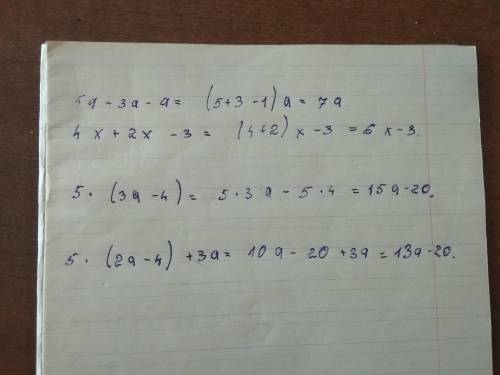 5a - 3a - a = (5+3-1) a = 7a
4x + 2x - 3 = (4+2) x - 3 = 6x - 3.
5 · (3a - 4) = 5 · 3a - 5 · 4 = 15a - 20.
5 · (2a - 4) + 3a = 10a - 20 + 3a = 13a - 20.